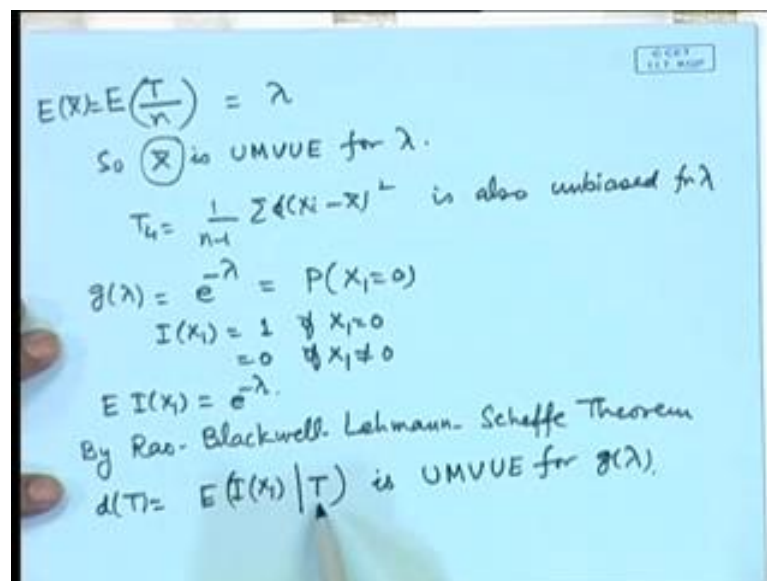 E(X̄)=E(T/n) = λ
So X̄ is UMVUE for λ.
T₄= 1/(n-1) Σ((Xi-X̄)² is also unbiased for λ
g(λ) = e^{-λ} = P(X₁=0)
I(X₁) = 1 if X₁=0
=0 if X₁≠0
E I(X₁) = e^{-λ}.
By Rao-Blackwell-Lehmann-Scheffe Theorem
d(T)= E(I(X₁)|T) is UMVUE for g(λ).